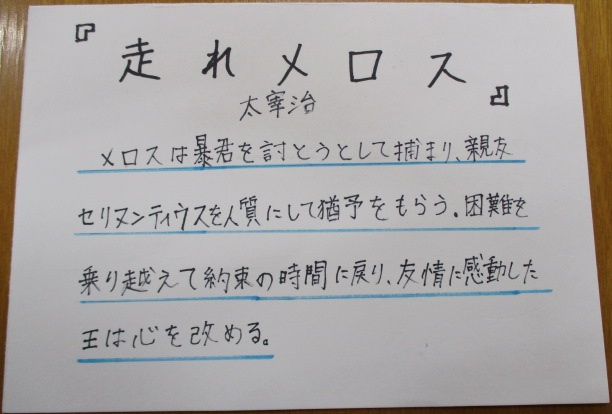 『走れメロス』
太宰治
メロスは暴君を討とうとして捕まり、親友
セリヌンティウスを人質にして猶予をもらう。困難を
乗り越えて約束の時間に戻り、友情に感動した
王は心を改める。